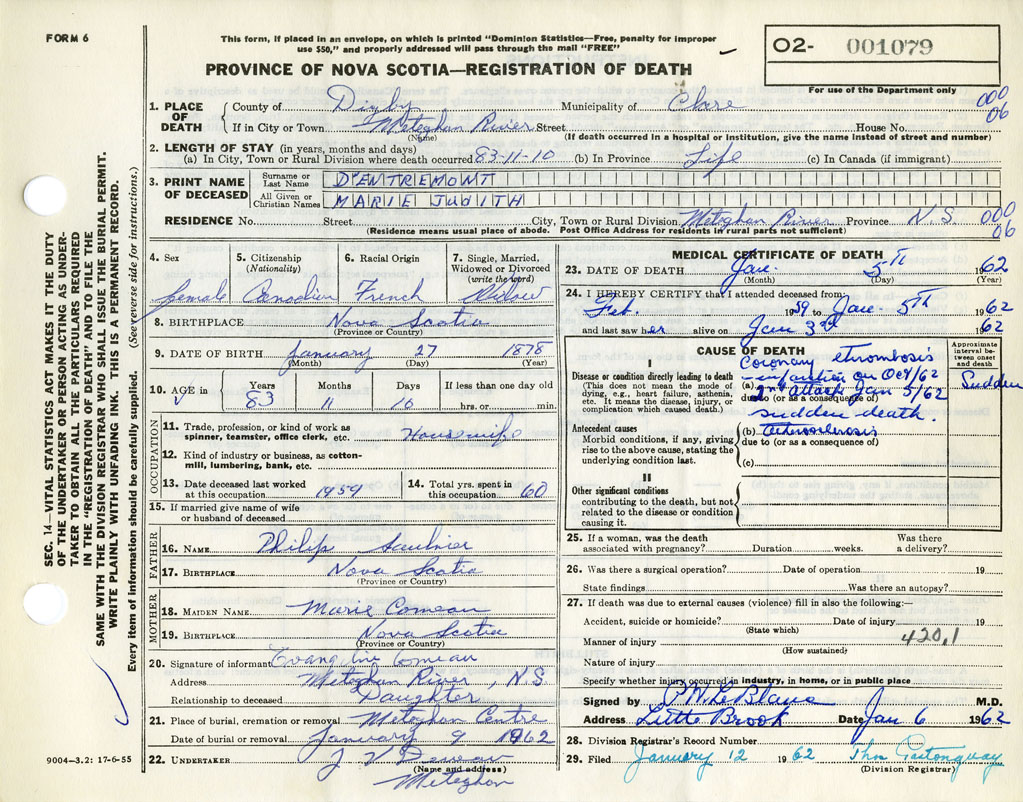 FORM 6
This form, if placed in an envelope, on which is printed "Dominion Statistics—Free, penalty for improper
use $50," and properly addressed will pass through the mail "FREE"
PROVINCE OF NOVA SCOTIA—REGISTRATION OF DEATH
O2- 001079
For use of the Department only
000
06
1. PLACE OF DEATH { County of Digby Municipality of Clare
If in City or Town Meteghan River Street House No.
(Name) (If death occurred in a hospital or institution, give the name instead of street and number)
2. LENGTH OF STAY (in years, months and days)
(a) In City, Town or Rural Division where death occurred 83-11-10 (b) In Province Life (c) In Canada (if immigrant)
3. PRINT NAME OF DECEASED Surname or Last Name D'ENTREMONT
All Given or Christian Names MARIE JUDITH
RESIDENCE No. Street City, Town or Rural Division Meteghan River Province N.S.
000
06
(Residence means usual place of abode. Post Office Address for residents in rural parts not sufficient)
4. Sex 5. Citizenship (Nationality) 6. Racial Origin 7. Single, Married, Widowed or Divorced (write the word)
female Canadian French Widow
8. BIRTHPLACE Nova Scotia
(Province or Country)
9. DATE OF BIRTH January 27 1878
(Month) (Day) (Year)
10. AGE in { Years Months Days If less than one day old
83 11 10 hrs. or min.
OCCUPATION
11. Trade, profession, or kind of work as
spinner, teamster, office clerk, etc. Housewife
12. Kind of industry or business, as cotton-
mill, lumbering, bank, etc.
13. Date deceased last worked at this occupation 1959 14. Total yrs. spent in this occupation 60
15. If married give name of wife
or husband of deceased
FATHER
16. NAME Philip Saulnier
17. BIRTHPLACE Nova Scotia
(Province or Country)
MOTHER
18. MAIDEN NAME Marie Comeau
19. BIRTHPLACE Nova Scotia
(Province or Country)
20. Signature of informant Evangeline Comeau
Address Meteghan River, N.S.
Relationship to deceased Daughter
21. Place of burial, cremation or removal Meteghan Centre
Date of burial or removal January 9 1962
22. UNDERTAKER J V Deveau
(Name and address)
Meteghan
MEDICAL CERTIFICATE OF DEATH
23. DATE OF DEATH Jan. 5TH 1962
(Month) (Day) (Year)
24. I HEREBY CERTIFY that I attended deceased from:
Feb. 1959 to Jan. 5TH 1962
and last saw her alive on Jan 3rd 1962
CAUSE OF DEATH
Approximate interval between onset and death
I
Disease or condition directly leading to death
(This does not mean the mode of
dying, e.g., heart failure, asthenia,
etc. It means the disease, injury, or
complication which caused death.)
coronary thrombosis
(a) infarction on Oct/62
2nd attack Jan 5/62
due to (or as a consequence of)
sudden death.
Sudden
Antecedent causes
Morbid conditions, if any, giving
rise to the above cause, stating the
underlying condition last.
(b) Atherosclerosis
due to (or as a consequence of)
(c)
II
Other significant conditions
contributing to the death, but not
related to the disease or condition
causing it.
25. If a woman, was the death
associated with pregnancy? Duration weeks. Was there a delivery?
26. Was there a surgical operation? Date of operation 19
State findings Was there an autopsy?
27. If death was due to external causes (violence) fill in also the following:—
Accident, suicide or homicide? Date of injury 19
(State which)
420.1
Manner of injury
(How sustained)
Nature of injury
Specify whether injury occurred in industry, in home, or in public place
Signed by P.W. LeBlanc M.D.
Address Little Brook Date Jan 6 1962
28. Division Registrar's Record Number
29. Filed January 12 1962 Thos Gastonguay
(Division Registrar)
SEC. 14—VITAL STATISTICS ACT MAKES IT THE DUTY
OF THE UNDERTAKER OR PERSON ACTING AS UNDER-
TAKER TO OBTAIN ALL THE PARTICULARS REQUIRED
IN THE "REGISTRATION OF DEATH" AND TO FILE THE
SAME WITH THE DIVISION REGISTRAR WHO SHALL ISSUE THE BURIAL PERMIT.
WRITE PLAINLY WITH UNFADING INK. THIS IS A PERMANENT RECORD.
Every item of information should be carefully supplied. (See reverse side for instructions.)
9004-3.2: 17-6-55